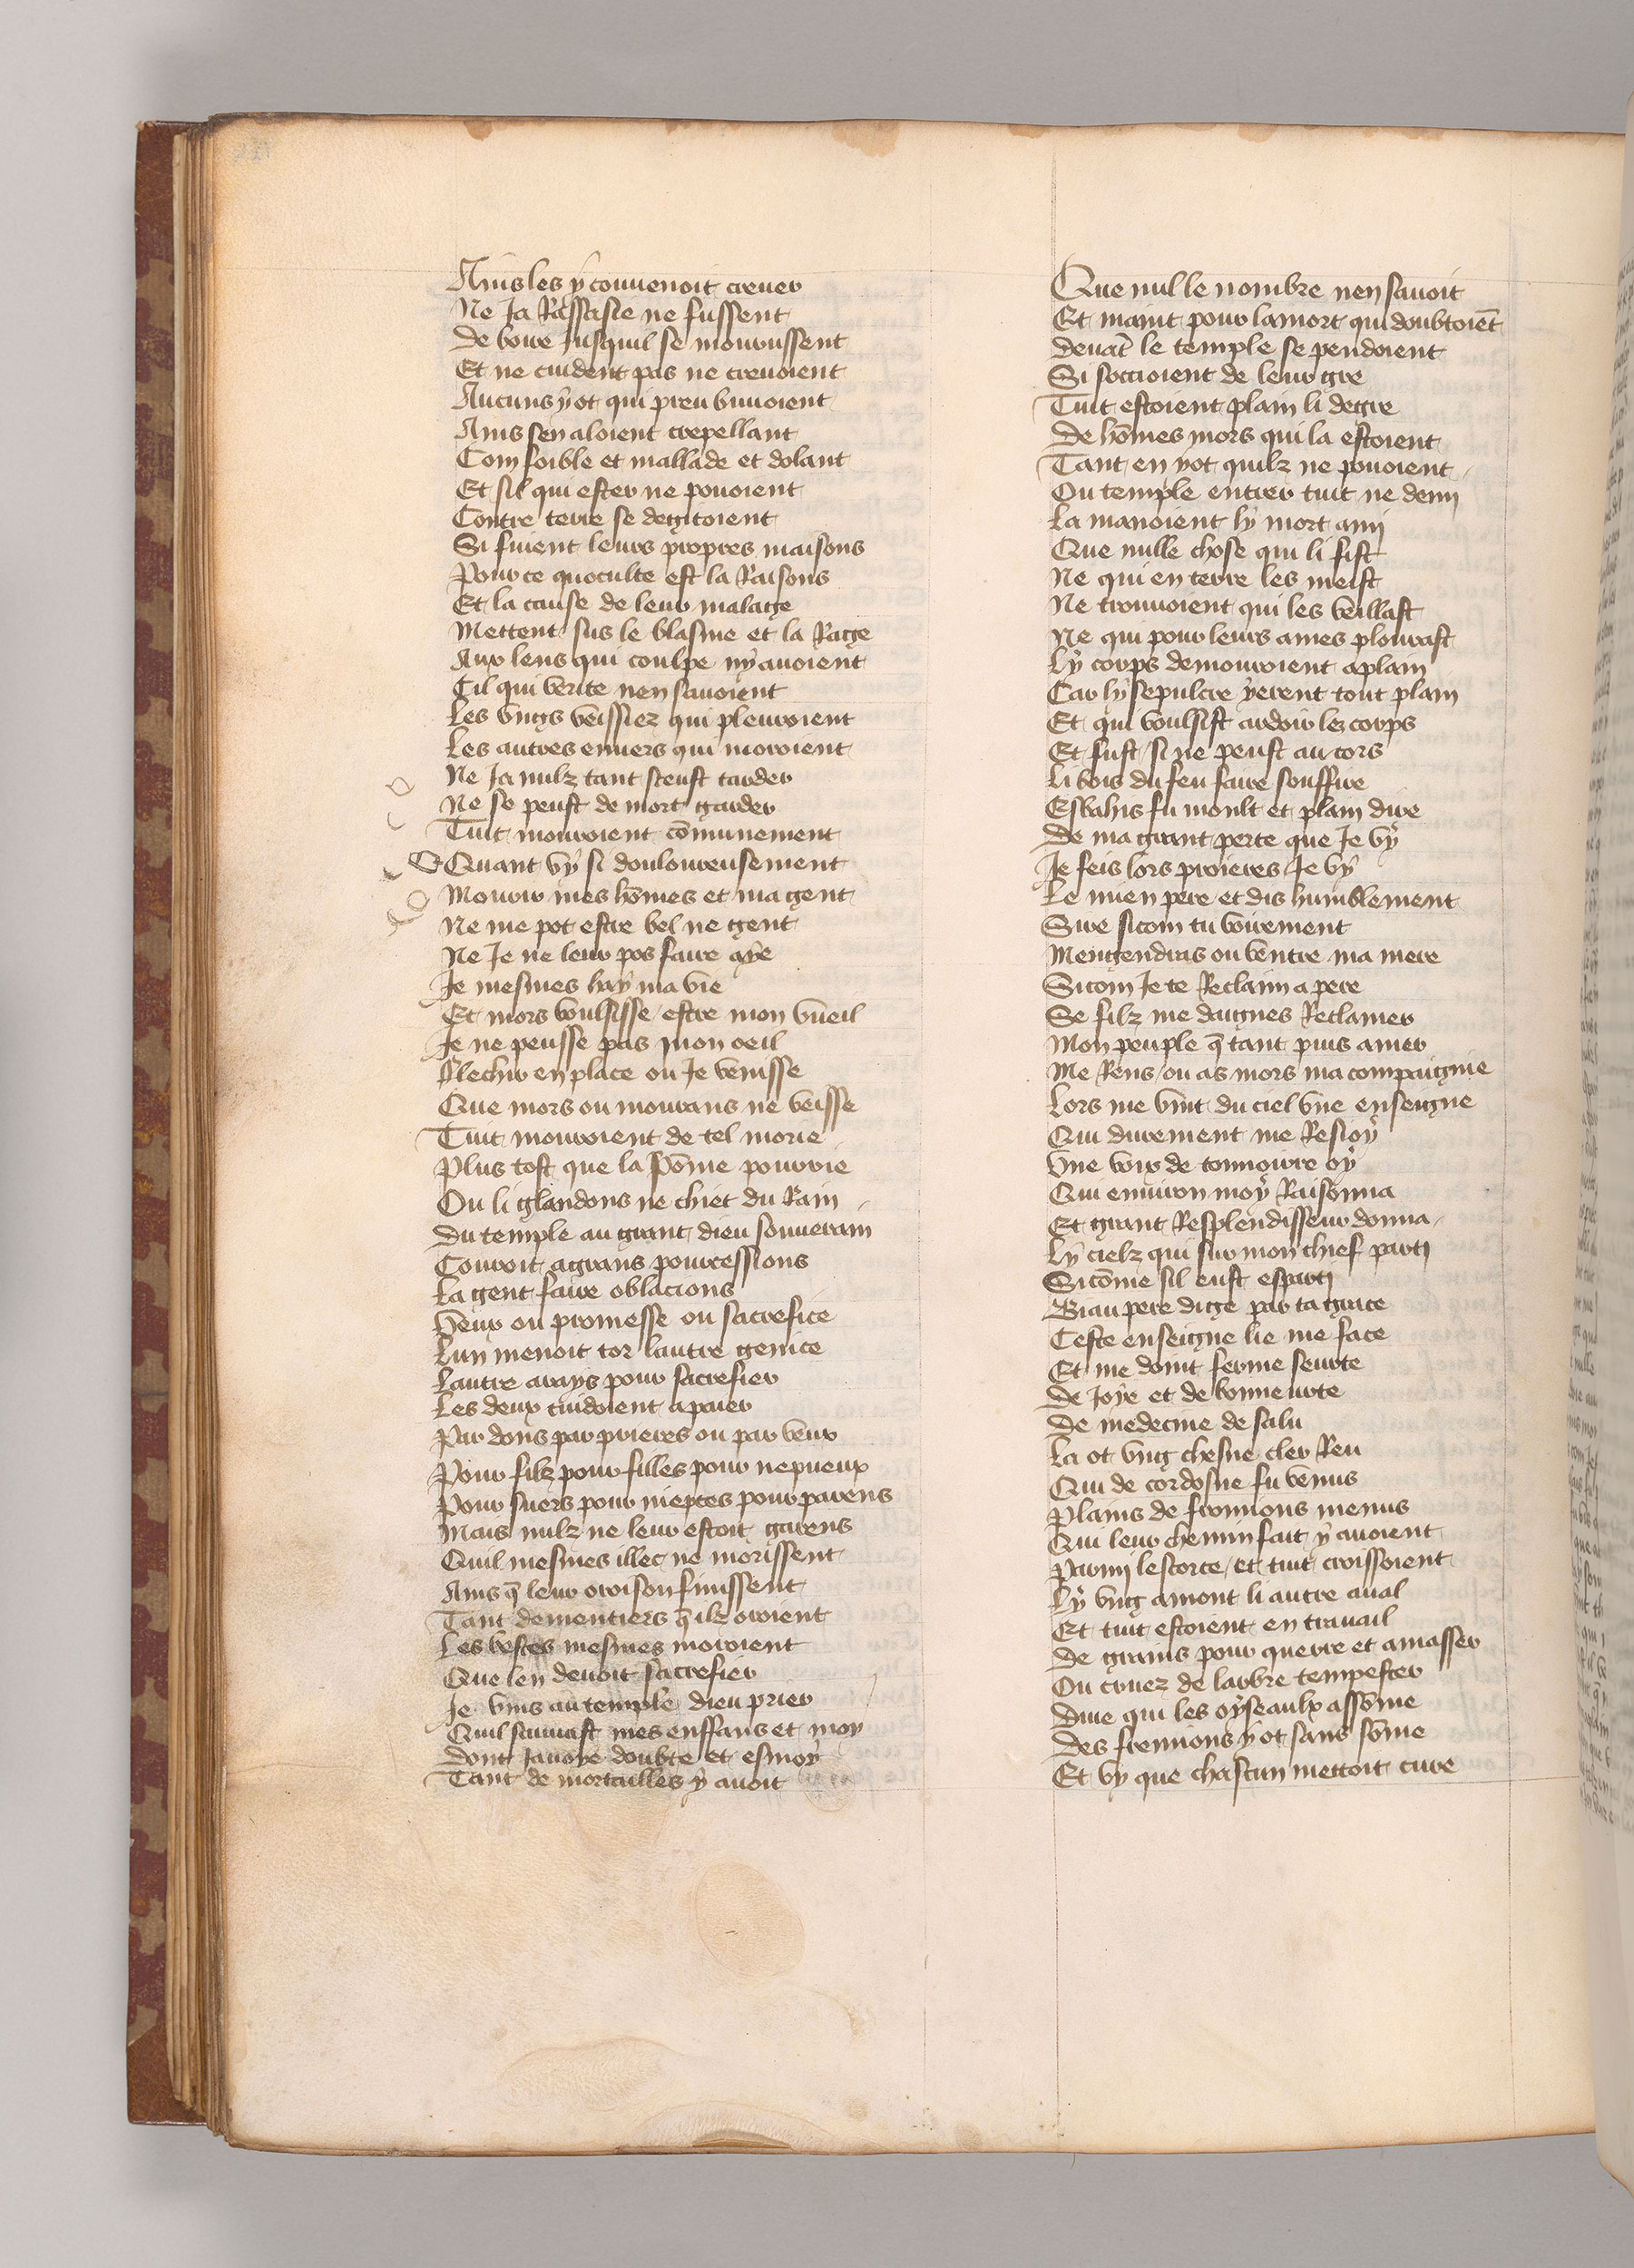 Ains les y conuenoit creuer
Ne Ja Rassasie ne fussent
De boire Jusquil se mourussent
Et ne cuident pas ne creuoient
Aucuns y ot qui preu buuoient
Ains sen aloient trepellant
Com foible et mallade et dolant
Et sil qui ester ne pouoient
Contre terre se degitoient
Si fuient leurs propres maisons
Pour ce quoculte est la Raisons
Et la cause de leur malage
Mettent sus le blasme et la Rage
Aux lens qui coulpe ny auoient
Cil qui verite nen sauoient
Les vngs veissiez qui pleuroient
Les autres enuers qui moroient
Ne Ja nulz tant sceust tarder
Ne se peust de mort garder
Tuit mouroient cōmunement
Quant vy si douloureusement
Mourir mes hōmes et ma gent
Ne me pot estre bel ne gent
Ne Je ne leur pos faire aye
Je mesmes hay ma vie
Et mors voulsisse estre mon vueil
Je ne peusse pas mon oeil
Flechir en place ou Je venisse
Que mors ou mourans ne veisse
Tuit mouroient de tel morie
Plus tost que la pōme pourrie
Ou li glandons ne chiet du Rain
Du temple au grant dieu souuerain
Couroit a grans pourcessions
La gent faire oblacions
Veux ou promesse ou sacrefice
Lun menoit tor lautre genice
Lautre arays pour sacrefier
Les deux cuidoient apaier
Par dons par prieres ou par veux
Pour filz pour filles pour nepueux
Pour suers pour nieptes pour parens
Mais nulz ne leur estoit garens
Quil mesmes illec ne morissent
Ains q̄ leur oroison finissent
Tant dementiers q̄ ilz oroient
Les bestes mesmes moroient
Que len deuoit sacrefier
Je vins au temple dieu prier
Quil sauuast mes enffans et moy
Dont Jauoye doubte et esmoy
Tant de mortailles y auoit
Que nul le nombre nen sauoit
Et maint pour lamort qui doubtoiēt
Deuāt le temple se pendoient
Si soccioient de leur gre
Tuit estoient plain li degre
De hōmes mors qui la estoient
Tant en yot quilz ne pouoient
Ou temple entrer tuit ne demi
La manoient ly mort ami
Que nulle chose qui li fist
Ne qui en terre les meist
Ne trouuoient qui les veillast
Ne qui pour leurs ames plourast
Ly corps demouroient a plain
Car ly sepulcre yerent tout plain
Et qui voulsist ardoir lez corps
Et fust si ne peust au cors
Li bois du feu faire souffire
Esbahis fu moult et plain dire
De ma grant perte que Je vy
Je feis lors proieres Je vy
Le mien pere et dis humblement
Sire sicom tu voirement
Mengendras ou ventre ma mere
Sicom Je te Reclaim a pere
Se filz me daignes Reclamer
Mon peuple q̄ tant puis amer
Me Rens ou as mors ma compaignie
Lors me vint du ciel vne enseigne
Qui durement me Resioy
Vne voix de tonnoirre oy
Qui enuiron moy Raisonna
Et grant Resplendisseur donna
Ly cielz qui sur mon chief parti
Sicōme sil eust esparti
Biau pere dige par ta grace
Ceste enseigne lie me face
Et me doint ferme seurte
De Joye et de bonneurte
De medecine de salu
La ot vng chesne cler Reu
Qui de cordosne fu venus
Plains de fronmons menus
Qui leur chemin fait y auoient
Parmi lescorce et tuit croissoient
Ly vng amont li autre aual
Et tuit estoient en trauail
De grains pour querre et amasser
Ou cruez de larbre tempester
Dire qui les oyseaulx assōme
Des frenuions y ot sans sōme
Et vy que chascun mettoit cure